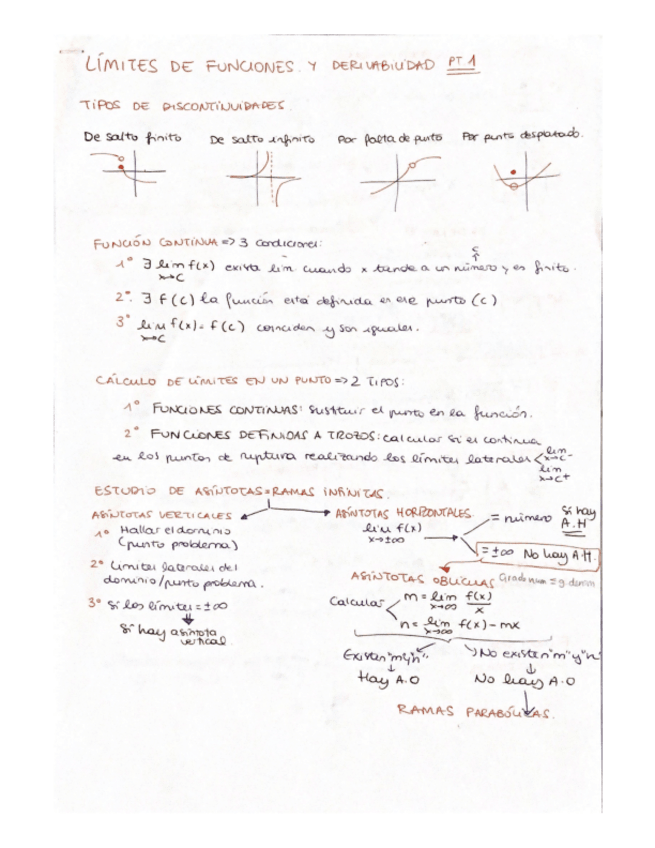 LÍMITES DE FUNCIONES Y DERIVABILIDAD PT 1
TIPOS DE DISCONTINUIDADES.
De salto finito De salto infinito Por falta de punto Por punto desplazado.
FUNCIÓN CONTINUA => 3 condiciones:
1º ∃ lim f(x) exista lim cuando x tiende a un número y es finito.
x→C
C
2º. ∃ f(c) la función está definida en ese punto (c)
3º lim f(x) = f(c) coinciden y son iguales.
x→C
CÁLCULO DE LÍMITES EN UN PUNTO => 2 TIPOS:
1º FUNCIONES CONTINUAS: sustituir el punto en la función.
2º FUNCIONES DEFINIDAS A TROZOS: calcular si es continua
en los puntos de ruptura realizando los límites laterales < lim x→C-
lim x→C+
ESTUDIO DE ASÍNTOTAS = RAMAS INFINITAS.
ASÍNTOTAS VERTICALES
1º Hallar el dominio
(punto problema)
2º Limites laterales del
dominio/punto problema.
3º Si los límites = ±∞
Si hay asíntota
vertical.
ASÍNTOTAS HORIZONTALES
lim f(x)
x→±∞
= número Si hay
A.H
= ±∞ No hay A.H.
ASÍNTOTAS OBLICUAS Grado num = g. denom
Calcular
m = lim f(x)/x
x→∞
n = lim f(x) - mx
x→∞
Existen "m y "n".
Hay A.O
No existen "m" y "n"
No hay A.O
RAMAS PARABÓLICAS.